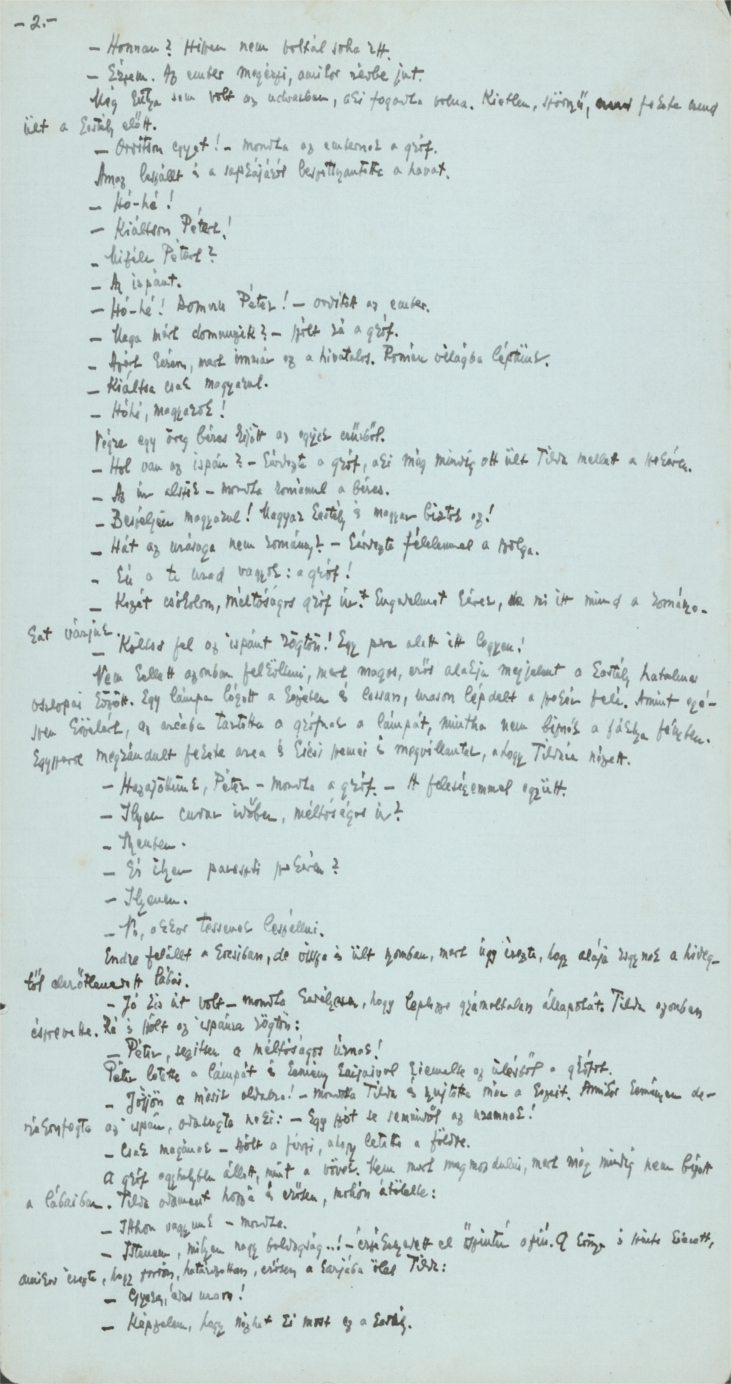 - 2. -
- Honnan? Hiszen nem voltál soha itt.
- Érzem. Az ember megérzi, amikor révbe jut.
Még kutya sem volt az udvarban, aki fogadta volna. Kietlen, szörnyű, fekete csend
ült a kastély előtt.
- Ordítson egyet! - mondta az embernek a gróf.
Amaz leszállt és a sapkájáról lepöttyantotta a havat.
- Hó-hé!
- Kiáltson Pétert!
- Miféle Pétert?
- Az ispánt.
- Hó-hé! Domnu Péter! - ordított az ember.
- Maga miért domnuzik? - szólt rá a gróf.
- Azért kérem, mert immár ez a hivatalos. Román világba léptünk.
- Kiáltsa csak magyarul.
- Hóhé, magyarok!
Végre egy öreg béres kijött az egyik csűrből.
- Hol van az ispán? - kérdezte a gróf, aki még mindig ott ült Tilda mellett a szekéren.
- Az úr alszik - mondta románul a béres.
- Beszéljen magyarul! Magyar kastély és magyar birtok ez!
- Hát az uraság nem román? - kérdezte félelemmel a szolga.
- Én a te urad vagyok: a gróf!
- Kezét csókolom, méltóságos gróf úr! Engedelmet kérek, de mi itt mind a románo-
kat várjuk.
- Költse fel az ispánt rögtön! Egy perc alatt itt legyen!
Nem kellett azonban felkölteni, mert magas, erős alakja megjelent a kastély hatalmas
oszlopai között. Egy lámpa lógott a kezében és lassan, lépdelt a szekér felé. Amint
közelért, az arcába tartotta a grófnak a lámpát, mintha nem bíznék a fáklya fényben.
Egyszerre megrándult fekete arca és szemei is megvillantak, ahogy Tildára nézett.
- Hazajöttünk, Péter - mondta a gróf. - A feleségemmel együtt.
- Ilyen cudar időben, méltóságos úr?
- Ilyenben.
- És ilyen paraszti szekéren?
- Ilyenen.
- No, akkor tessenek leszállni.
Endre felállt a kocsiban, de vissza is ült nyomban, mert úgy érezte, hogy alája rogynak a hideg-
től elerőtlenedett lábai.
- Jó kis út volt - mondta, hogy leplezze állapotát. Tilda azonban
észrevette. Rá is szólt az ispánra rögtön:
- Péter, segítsen a méltóságos úrnak!
Péter letette a lámpát és kemény karjaival kiemelte az ülésből a grófot.
- Jöjjön a másik oldalra! - mondta Tilda és nyújtotta már a kezeit. Amikor keményen de-
rékonfogta az ispán, odasúgta neki: - Egy szót se semmiről az uramnak!
- Csak magának - szólt a férfi, ahogy letette a földre.
A gróf egyhelyben állott, mint a cövek. Nem mert megmozdulni, mert még mindig nem bízott
a lábaiban. Tilda odament hozzá és erősen, mohón átölelte:
- Itthon vagyunk - mondta.
- Istenem, milyen nagy boldogság..! - érzékenyedett el őszintén a fiú. A könnye is szinte kicsordult,
amikor érezte, hogy forrón, határozottan, erősen a karjába ölel Tilda:
- Gyere, édes uram!
- Képzelem, hogy nézhet ki most ez a kastély.